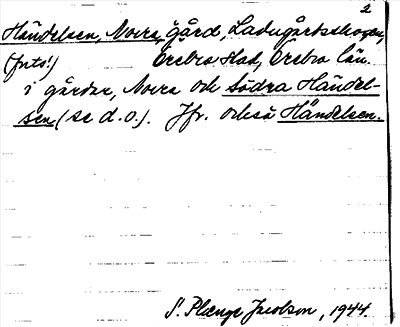 2
Händelsen, Norra, gård, Ladugårdsskogen,
(forts!) Örebro stad, Örebro län.
i gårdar, Norra och Södra Händel-
sen (se d.o.). Jfr. också Händelsen.
S. Plænge Jacobson, 1944.